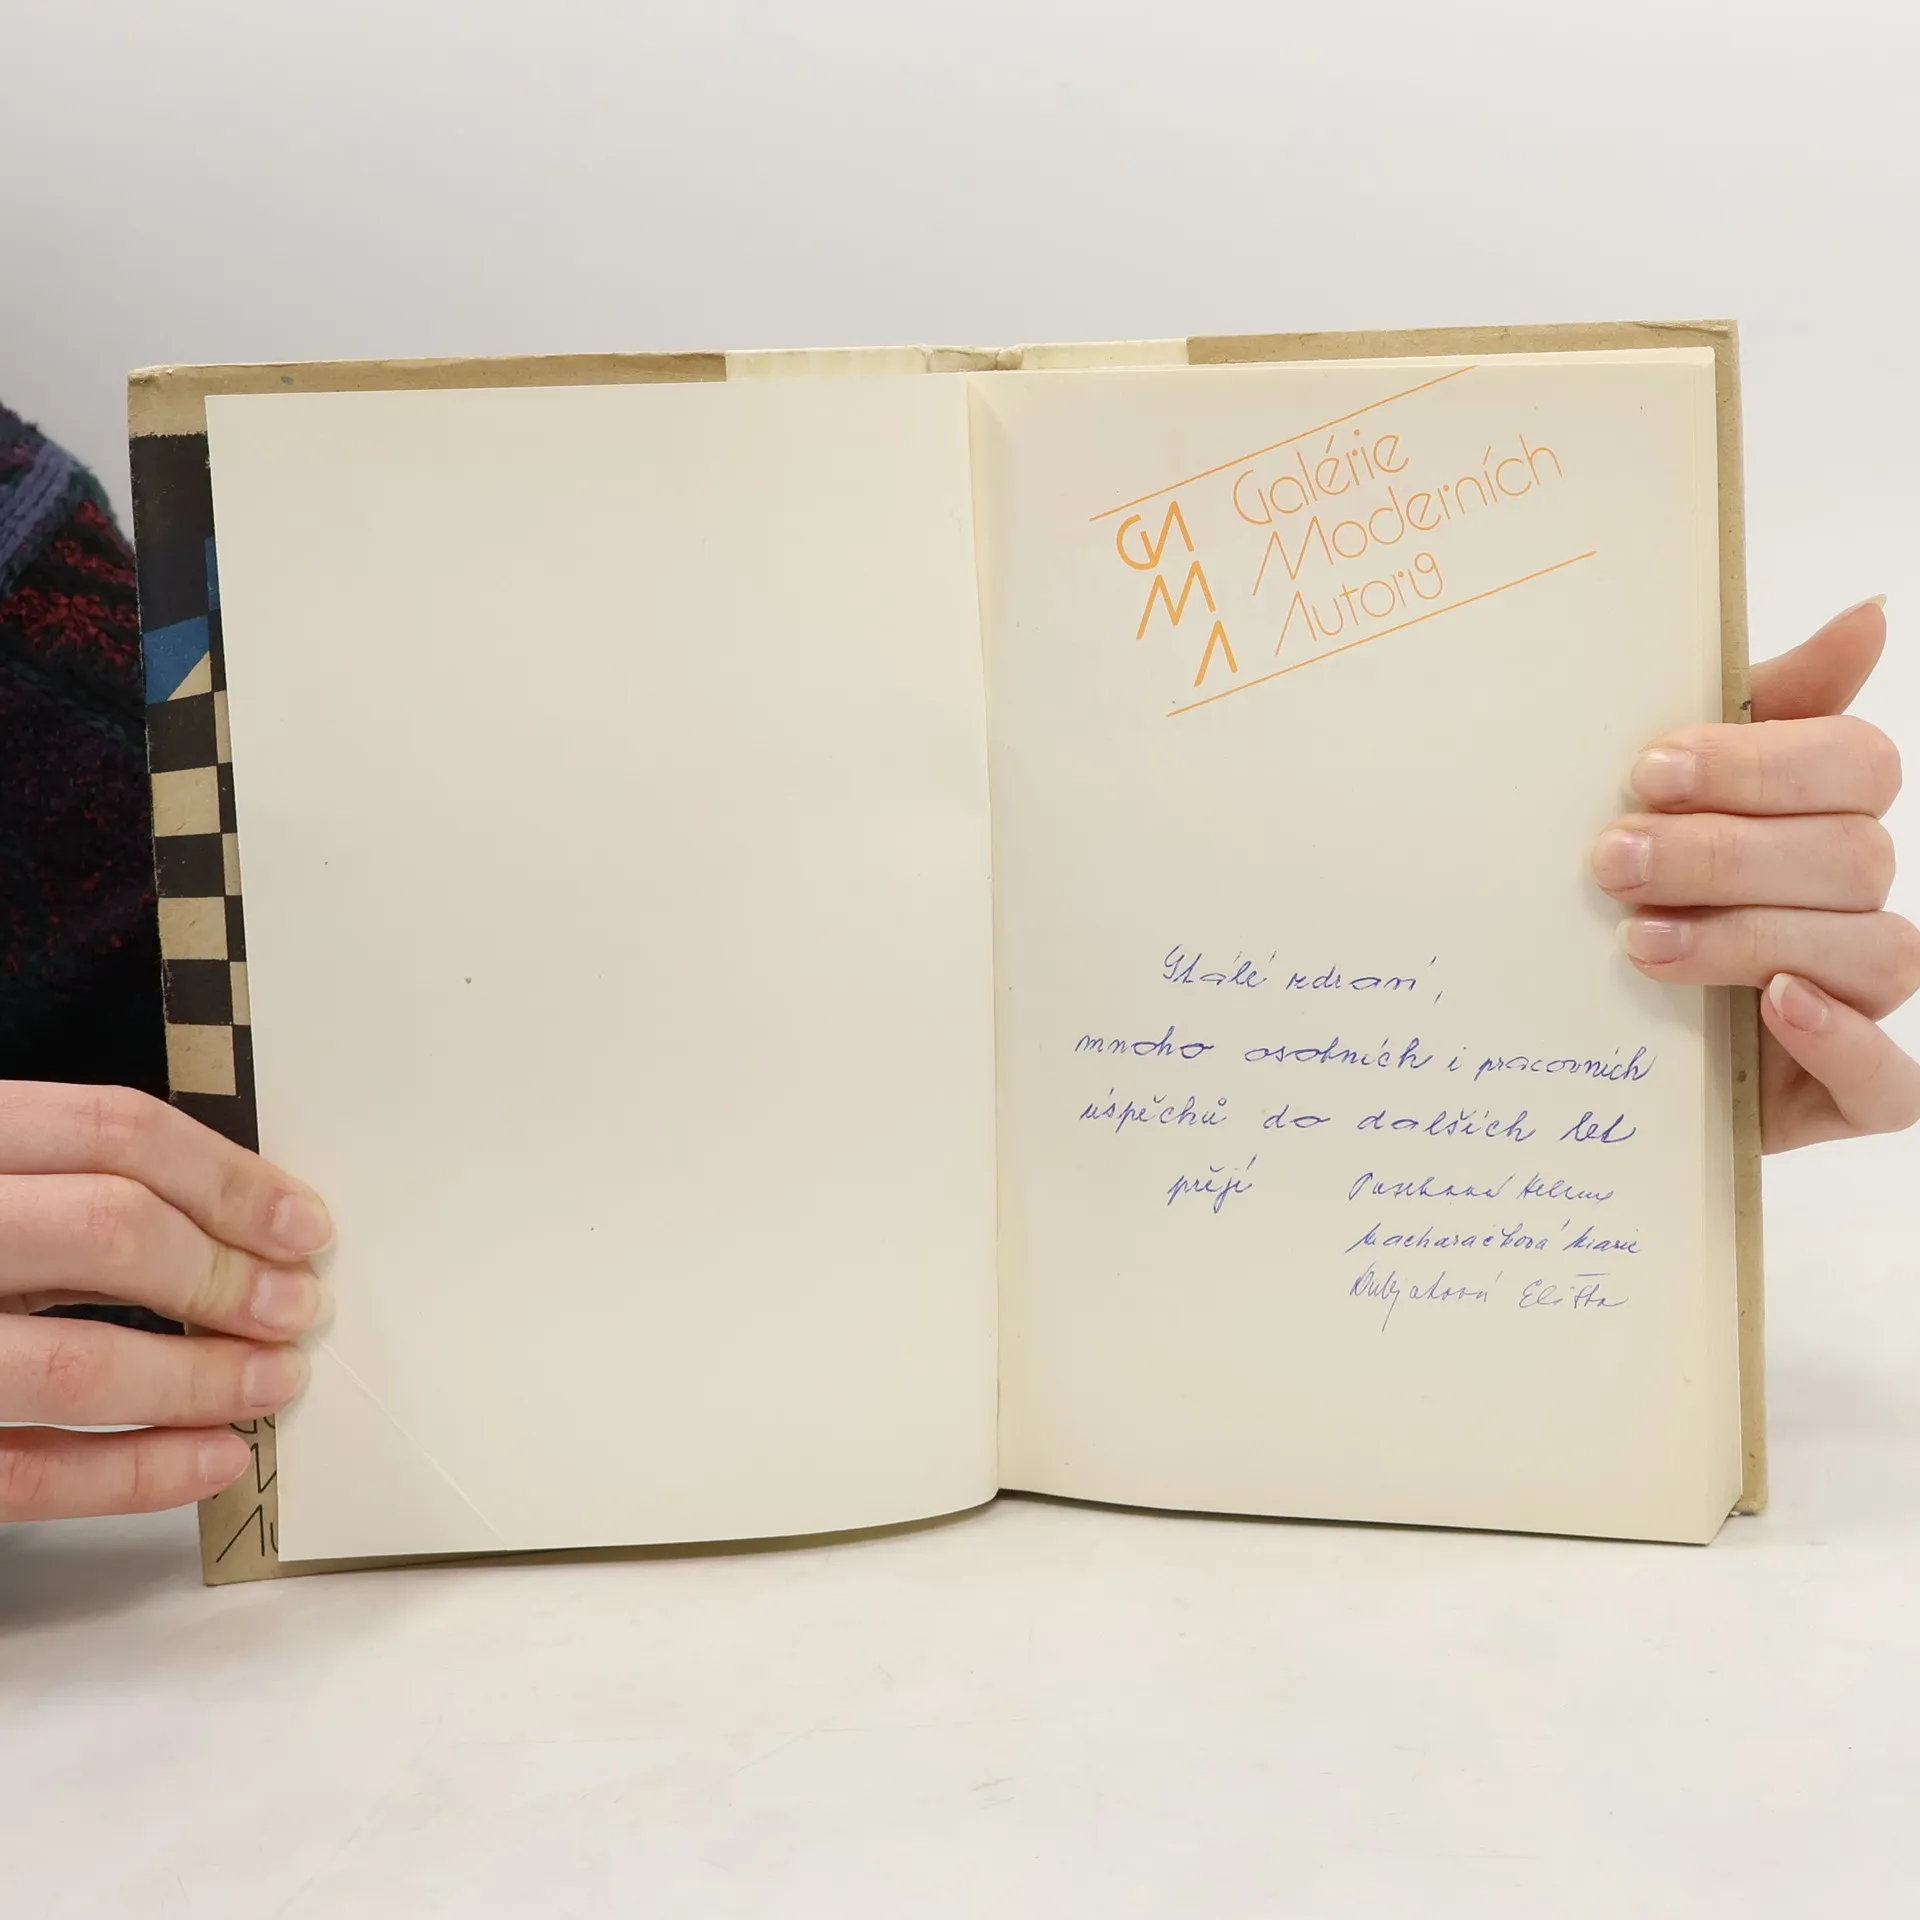 GM
M
A
Galérie
Moderních
Autorů
Stálé zdraví,
mnoho osobních i pracovních
úspěchů do dalších let
přejí
Helena
Macharáčková Marie
Dubjaková Eliška